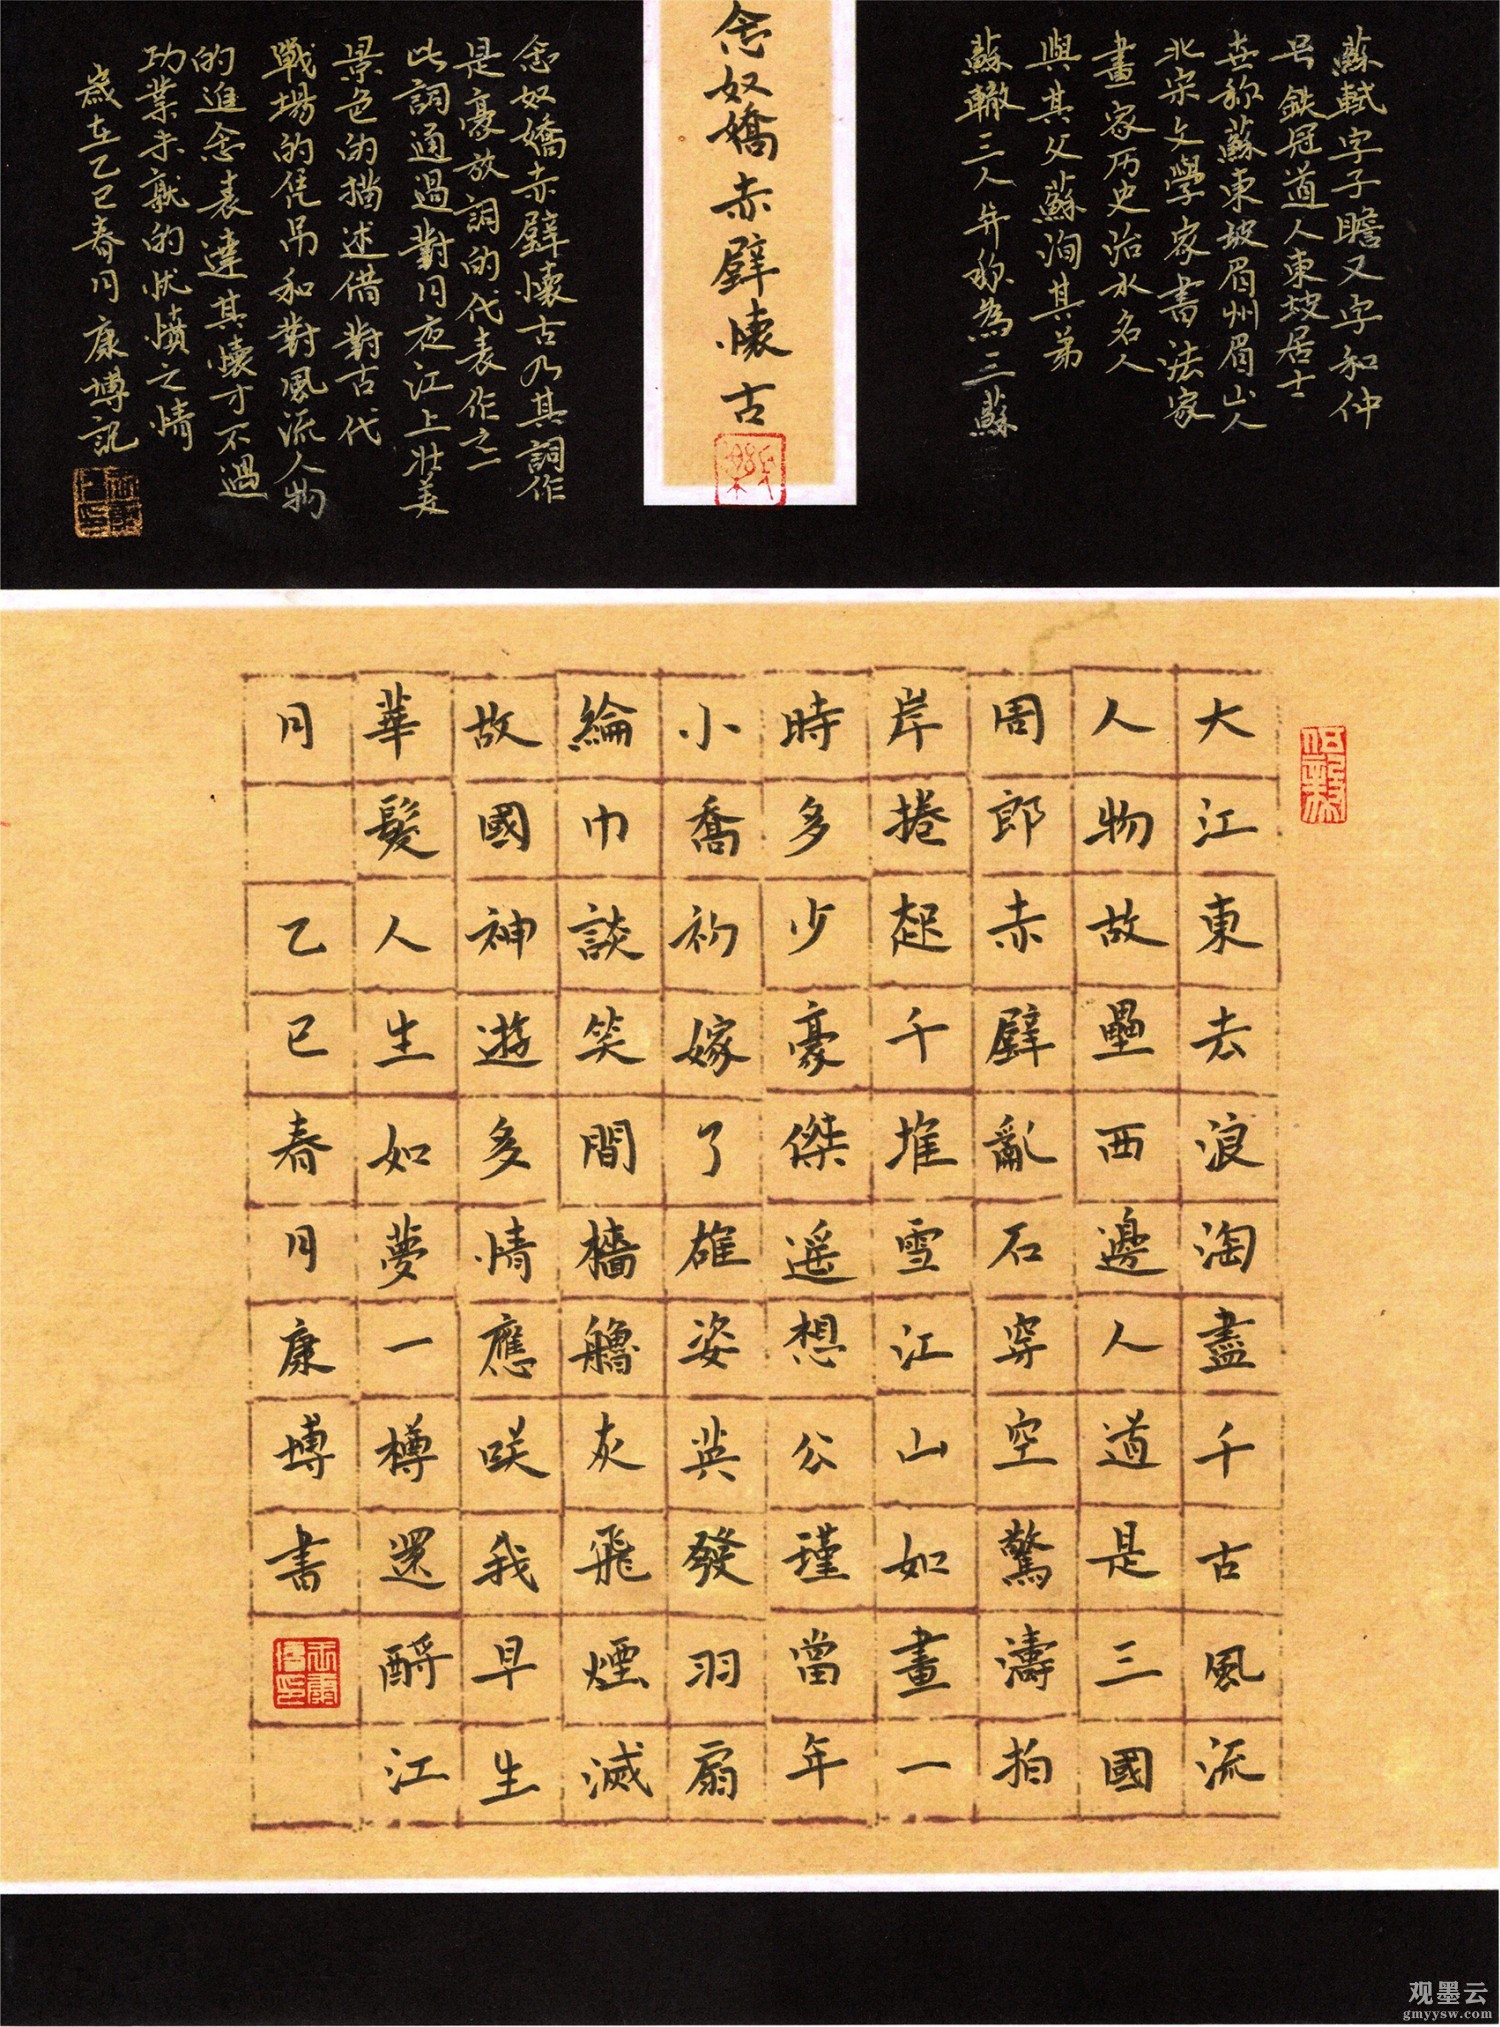 蘇軾字子瞻又字和仲
号鉄冠道人東坡居士
世称蘇東坡眉州眉山人
北宋文學家書法家
畫家历史治水名人
與其父蘇洵其弟
蘇轍三人并称為三蘇
念奴嬌赤壁懷古
念奴嬌赤壁懷古乃其詞作
是豪放詞的代表作之一
此詞通過對月夜江上壯美
景色的描述借對古代
戰場的凭吊和對風流人物
的追念表達其懷才不遇
功業未就的忧憤之情
歲在乙巳春月康博記
大江東去浪淘盡千古風流
人物故壘西邊人道是三國
周郎赤壁亂石穿空驚濤拍
岸捲起千堆雪江山如畫一
時多少豪傑遥想公瑾當年
小喬初嫁了雄姿英發羽扇
綸巾談笑間檣艣灰飛煙滅
故國神遊多情應咲我早生
華髮人生如夢一樽還酹江
月 乙巳春月康博書
观墨云
gmyysw.com